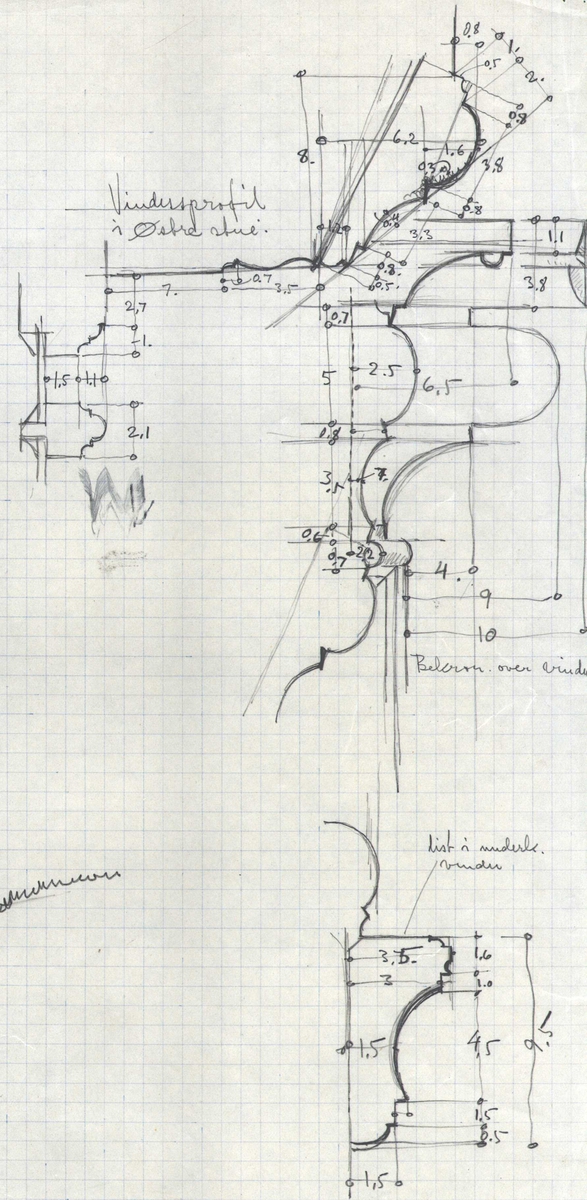 0.8
1.
0.5
2.
6.2
0.8
8.
1.6
3,8
Vindersprofil
i Østre stue.
0.8
3.3
1.1
0.8
0.5
3.8
0.7
7.
3,5
2,7
0.7
1.
5
2.5
6,5
1,5
1.1
0.8
2,1
3.5
0.6
2.2
0.7
4.
9
10
over
list i underk.
vinder
3,5
1.6
3
1.0
1,5
4,5
9.5
1.5
0.5
1,5